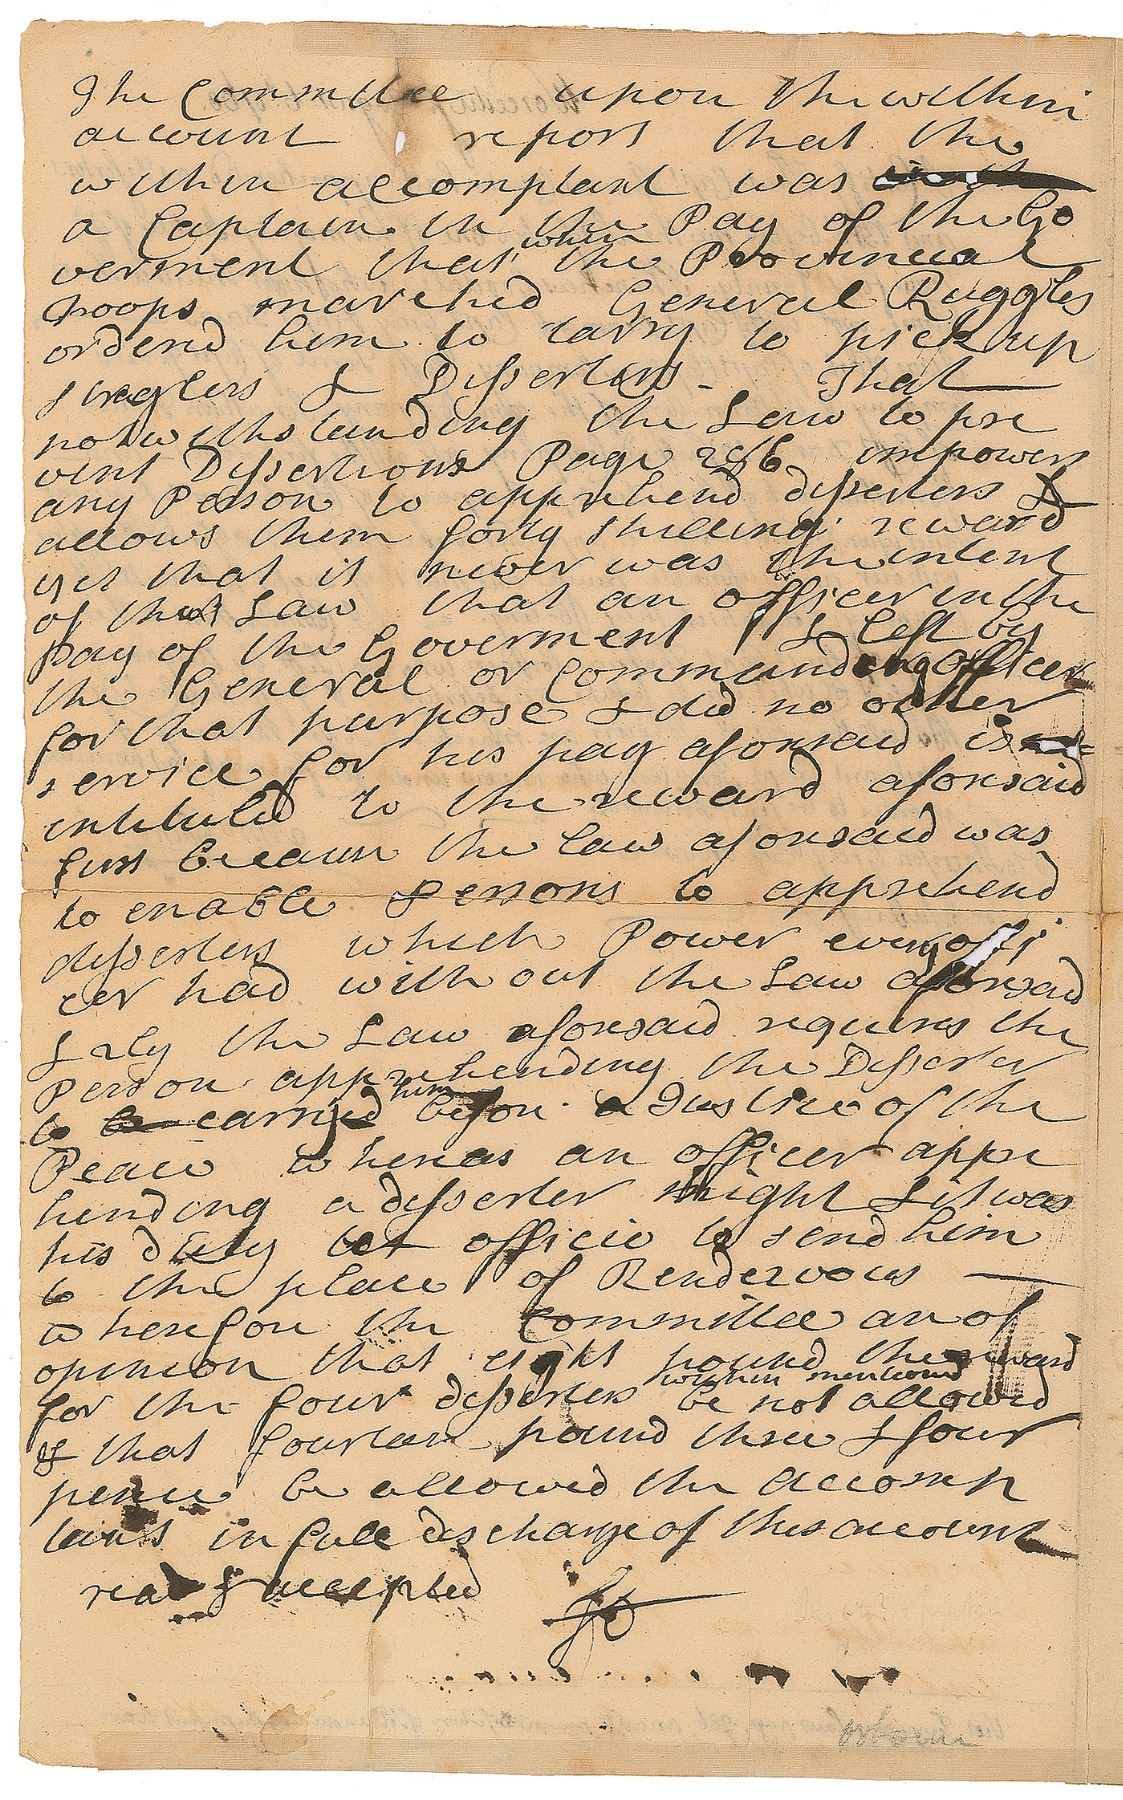 The Committee upon the within
account report that the
within accomptant was
a Captain in the Pay of the Go
verment that when the Provincial
troops marched General Ruggles
orderd him to tarry to pick up
straglers & Disserters - That
notwithstanding the Law to pre
vent Dissertions Page 296 impowers
any Person to apprehend disserters &
allows them forty shilling reward
yet that it never was the intent
of that Law that an officer in the
pay of the Goverment & left by
the General or Commanding officer
for that purpose & did no other
service for his pay aforesaid is
intituled to the reward aforesaid
first because the Law aforesaid was
to enable Persons to apprehend
disserters which Power every offi
cer had without the Law aforesaid
& 2ly the Law aforesaid requires the
Person apprehending the Disserter
to carry him before a Justice of the
Peace whereas an officer appre
hending a disserter might & it was
his duty officio to send him
to the place of Rendezvous
wherefore the Committee are of
opinion that eight pound the reward
for the four disserters within mentioned be not allowed
& that fourteen pound three & four
pence be allowed the Accomp
tants in full discharge of this account
read & accepted